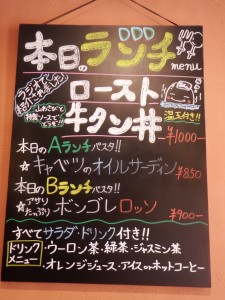 本日のランチ
menu
ロースト
牛タン丼
温玉付き!!
¥1000-
本日のAランチパスタ!!
☆キャベツのオイルサーディン ¥850
本日のBランチパスタ!!
☆アサリたっぷりボンゴレロッソ ¥900-
すべてサラダ・ドリンク付き!!
ドリンクメニュー
・ウーロン茶・緑茶・ジャスミン茶
・オレンジジュース・アイスorホットコーヒー